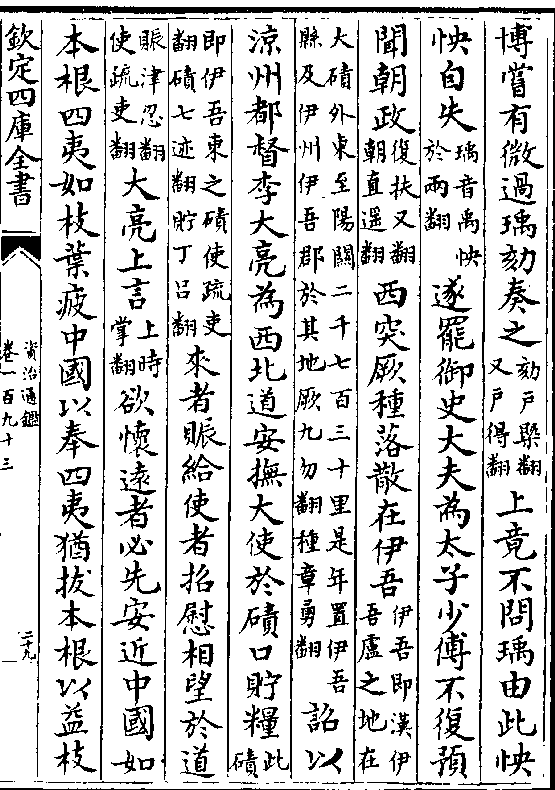 博嘗有微過瑀劾奏之劾戶槩翻又戶得翻上竟不問瑀由此怏
怏自失瑀音禹怏於兩翻遂罷御史大夫為太子少傅不復預
聞朝政復扶又翻朝直遥翻西突厥種落散在伊吾伊吾即漢伊吾盧之地在
大磧外東至陽關二千七百三十里是年置伊吾縣及伊州伊吾郡於其地厥九勿翻種章勇翻詔以
涼州都督李大亮為西北道安撫大使於磧口貯糧此磧
即伊吾東之磧使疏吏翻磧七迹翻貯丁吕翻來者賑給使者招慰相望於道
賑津忍翻使疏吏翻大亮上言上時掌翻欲懷遠者必先安近中國如
本根四夷如枝葉疲中國以奉四夷猶拔本根以益枝
欽定四庫全書
資治通鑑
卷一百九十三
二十九